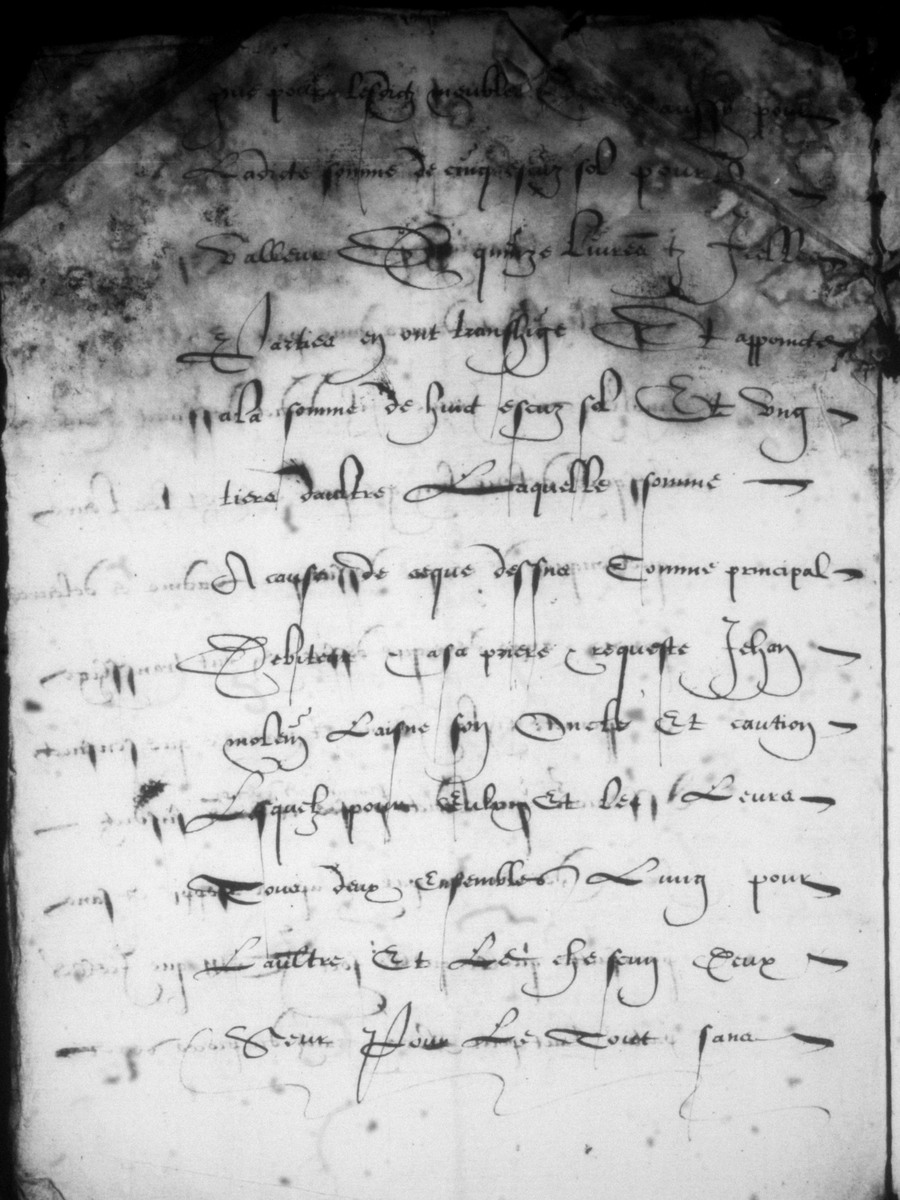 que pour lesdictz meubles aussy pour
Ladicte somme de cinq escuz sol pour
Valleur De quinze Livres tz Icelles
Parties en ont transhige Et appoincte
ala somme de huict escuz sol Et vng
tiers daultre Laquelle somme
A cause de ceque dessus Comme principal
Debiteur Et asa priere & requeste Jehan
molein Laisne son Oncle Et caution
Lesquelz pour Eulx Et les Leurs
Tous deux Ensembles Lung pour
Laultre Et Leu chescun Deux
Seur Pour Le Tout sans